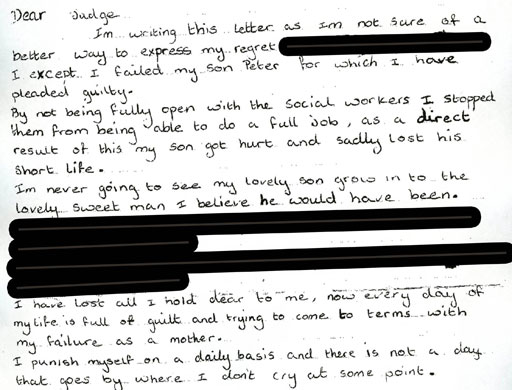 Dear Judge
Im writing this letter as Im not sure of a
better way to express my regret
I except I failed my son Peter for which I have
pleaded guilty.
By not being fully open with the social workers I stopped
them from being able to do a full job, as a direct
result of this my son got hurt and sadly lost his
short life.
Im never going to see my lovely son grow in to the
lovely sweet man I believe he would have been.
I have lost all I hold dear to me, now every day of
my life is full of guilt and trying to come to terms with
my failure as a mother.
I punish myself on a daily basis and there is not a day
that goes by where I don't cry at some point.